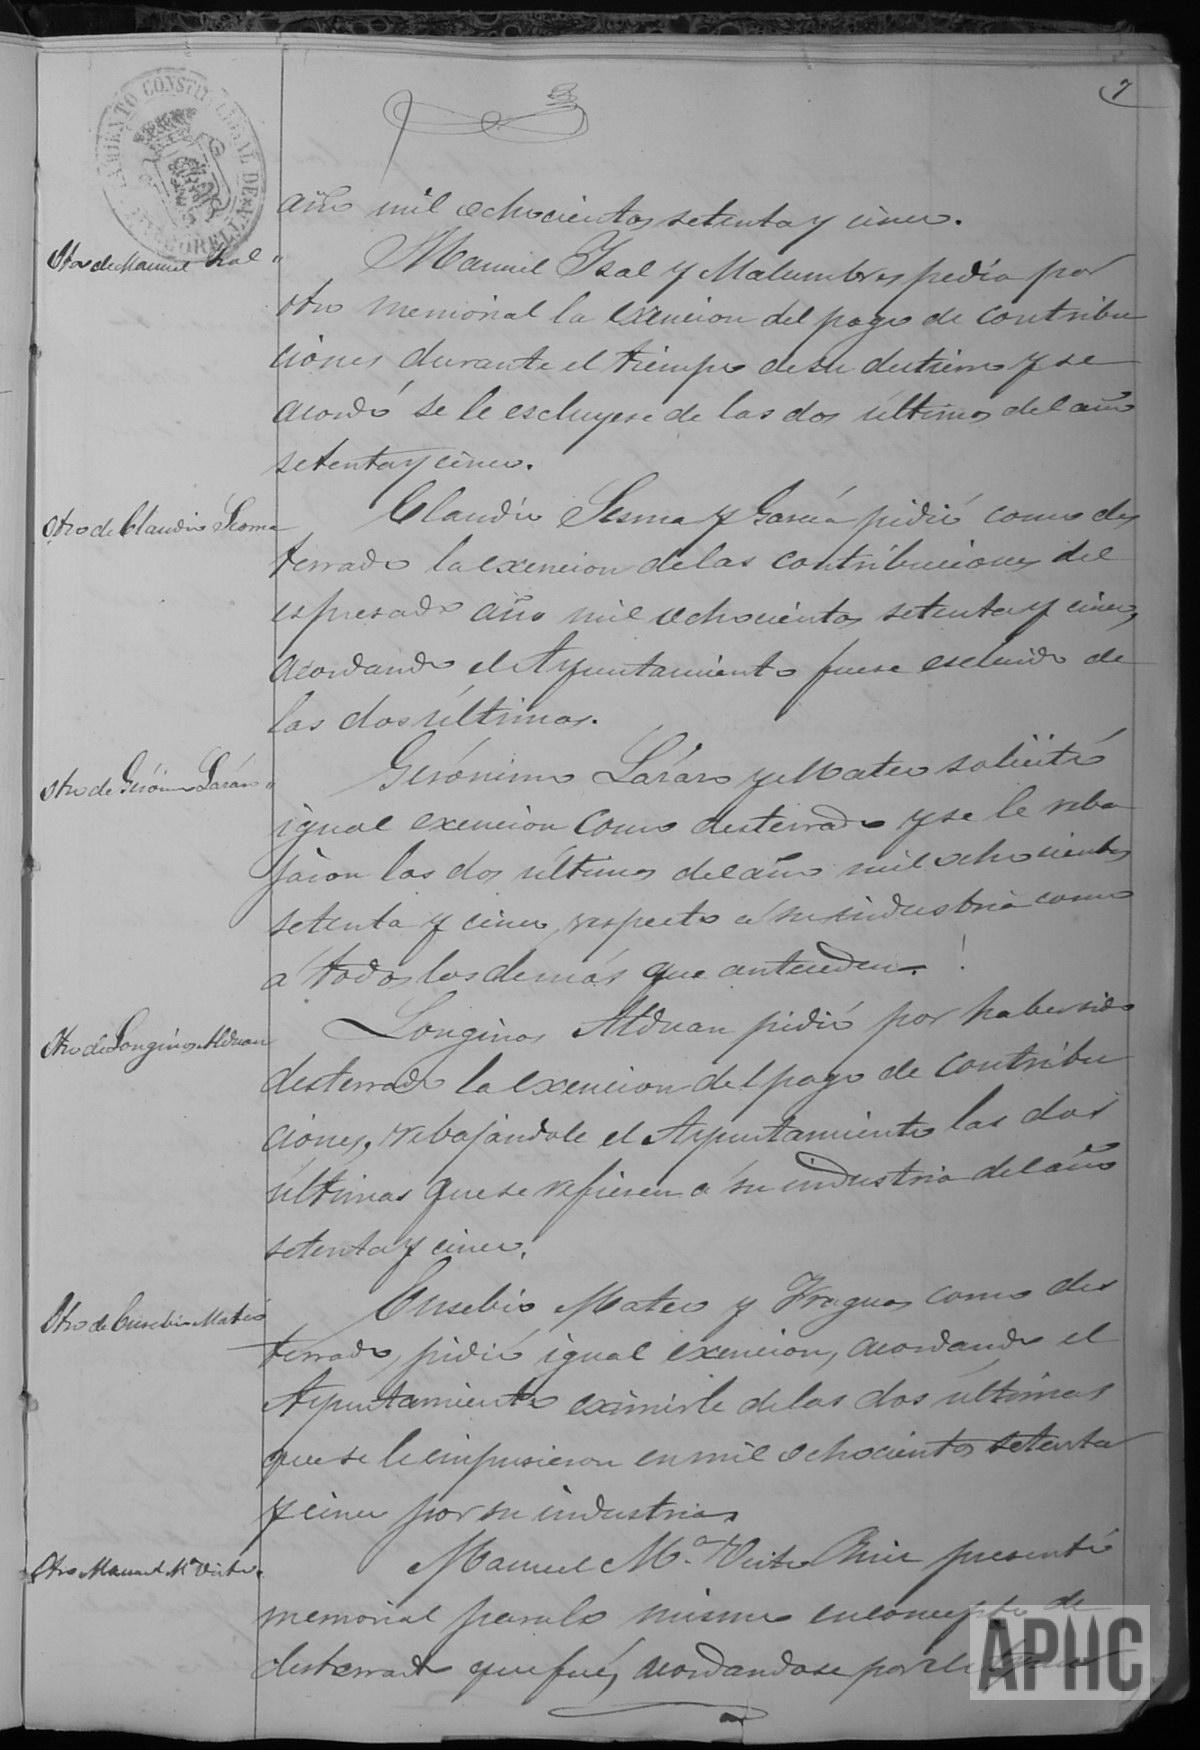 7
año mil ochocientos setenta y cinco.
Otro de Manuel Isal "
Manuel Isal y Malumbres pedia por
otro memorial la exencion del pago de contribu
ciones durante el tiempo de su destierro y se
acordó se le escluyese de las dos últimas del año
setenta y cinco.
Otro de Claudio Sesma
Claudio Sesma y García pidió como des
terrado la exencion de las contribuciones del
espresado año mil ochocientos setenta y cinco,
acordando el Ayuntamiento fuese escluido de
las dos últimas.
Otro de Gerónimo Lázaro "
Gerónimo Lázaro y Mateo solicitó
igual exencion como desterrado y se le reba
jaron las dos últimas del año mil ochocientos
setenta y cinco, respecto á su industria como
á todos los demás que anteceden.
Otro de Longinos Alduan
Longinos Alduan pidió por haber sido
desterrado la exencion del pago de contribu
ciones, rebajándole el Ayuntamiento las dos
últimas que se refieren á su industria del año
setenta y cinco.
Otro de Eusebio Mateo
Eusebio Mateo y Fraguas como des
terrado, pidió igual exencion, acordando el
Ayuntamiento eximirle de las dos últimas
que se le impusieron en mil ochocientos setenta
y cinco por su industria
Otro Manuel Mª Virto.
Manuel M.ª Virto Ruiz presentó
memorial para lo mismo en concepto de
desterrado que fué, acordandose por el
APHC